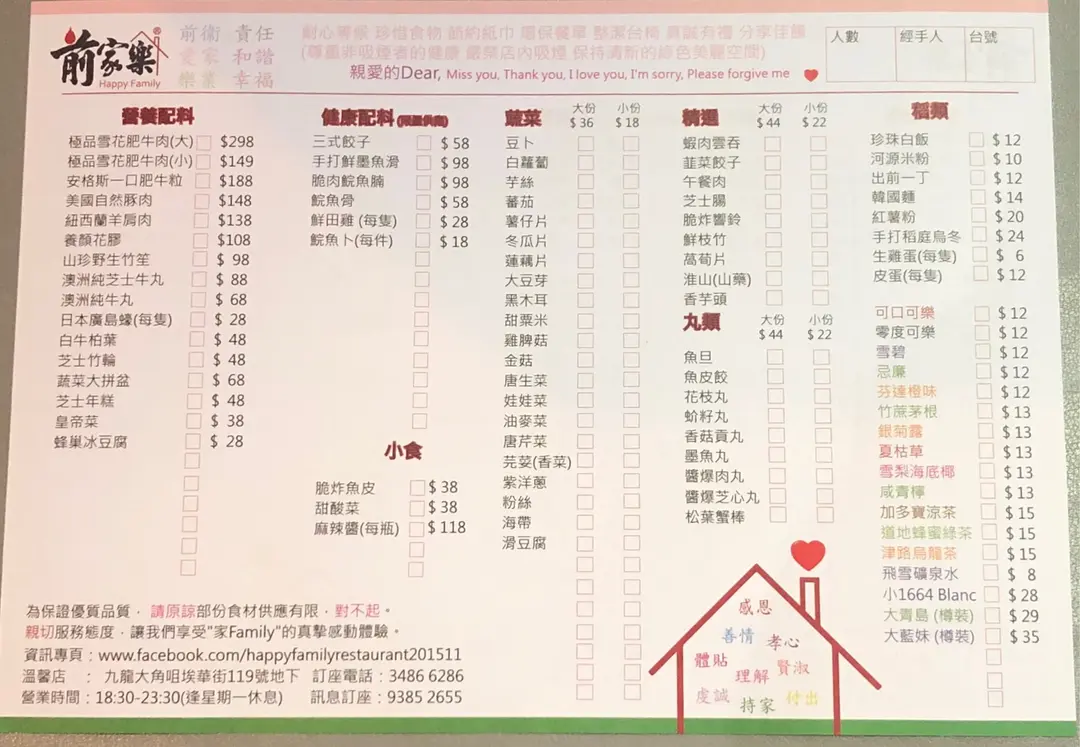 前家樂®
Happy Family
前衛 責任
愛家 和諧
樂業 幸福
耐心等候 珍惜食物 節約紙巾 環保餐單 整潔台椅 真誠有禮 分享佳餚
(尊重非吸煙者的健康 嚴禁店內吸煙 保持清新的綠色美麗空間)
親愛的Dear, Miss you, Thank you, I love you, I'm sorry, Please forgive me
人數
經手人
台號
營養配料
極品雪花肥牛肉(大) $298
極品雪花肥牛肉(小) $149
安格斯一口肥牛粒 $188
美國自然豚肉 $148
紐西蘭羊肩肉 $138
養顏花膠 $108
山珍野生竹笙 $ 98
澳洲純芝士牛丸 $ 88
澳洲純牛丸 $ 68
日本廣島蠔(每隻) $ 28
白牛柏葉 $ 48
芝士竹輪 $ 48
蔬菜大拼盆 $ 68
芝士年糕 $ 48
皇帝菜 $ 38
蜂巢冰豆腐 $ 28
健康配料(限量供應)
三式餃子 $ 58
手打鮮墨魚滑 $ 98
脆肉鯇魚腩 $ 98
鯇魚骨 $ 58
鮮田雞 (每隻) $ 28
鯇魚卜(每件) $ 18
小食
脆炸魚皮 $ 38
甜酸菜 $ 38
麻辣醬(每瓶) $ 118
蔬菜 大份 $ 36 小份 $ 18
豆卜
白蘿蔔
芋絲
蕃茄
薯仔片
冬瓜片
蓮藕片
大豆芽
黑木耳
甜粟米
雞脾菇
金菇
唐生菜
娃娃菜
油麥菜
唐芹菜
芫荽(香菜)
紫洋蔥
粉絲
海帶
滑豆腐
精選 大份 $ 44 小份 $ 22
蝦肉雲吞
韮菜餃子
午餐肉
芝士腸
脆炸響鈴
鮮枝竹
萵荀片
淮山(山藥)
香芋頭
丸類 大份 $ 44 小份 $ 22
魚旦
魚皮餃
花枝丸
蚧籽丸
香菇貢丸
墨魚丸
醬爆肉丸
醬爆芝心丸
松葉蟹棒
稻類
珍珠白飯 $ 12
河源米粉 $ 10
出前一丁 $ 12
韓國麵 $ 14
紅薯粉 $ 20
手打稻庭烏冬 $ 24
生雞蛋(每隻) $ 6
皮蛋(每隻) $ 12
可口可樂 $ 12
零度可樂 $ 12
雪碧 $ 12
忌廉 $ 12
芬達橙味 $ 12
竹蔗茅根 $ 13
銀菊露 $ 13
夏枯草 $ 13
雪梨海底椰 $ 13
咸青檸 $ 13
加多寶涼茶 $ 15
道地蜂蜜綠茶 $ 15
津路烏龍茶 $ 15
飛雪礦泉水 $ 8
小1664 Blanc $ 28
大青島 (樽裝) $ 29
大藍妹 (樽裝) $ 35
為保證優質品質，請原諒部份食材供應有限，對不起。
親切服務態度，讓我們享受"家Family"的真摯感動體驗。
資訊專頁：www.facebook.com/happyfamilyrestaurant201511
溫馨店 ：九龍大角咀埃華街119號地下 訂座電話：3486 6286
營業時間：18:30-23:30(逢星期一休息) 訊息訂座：9385 2655
感恩
善情 孝心
體貼 理解 賢淑
虔誠 持家 付出